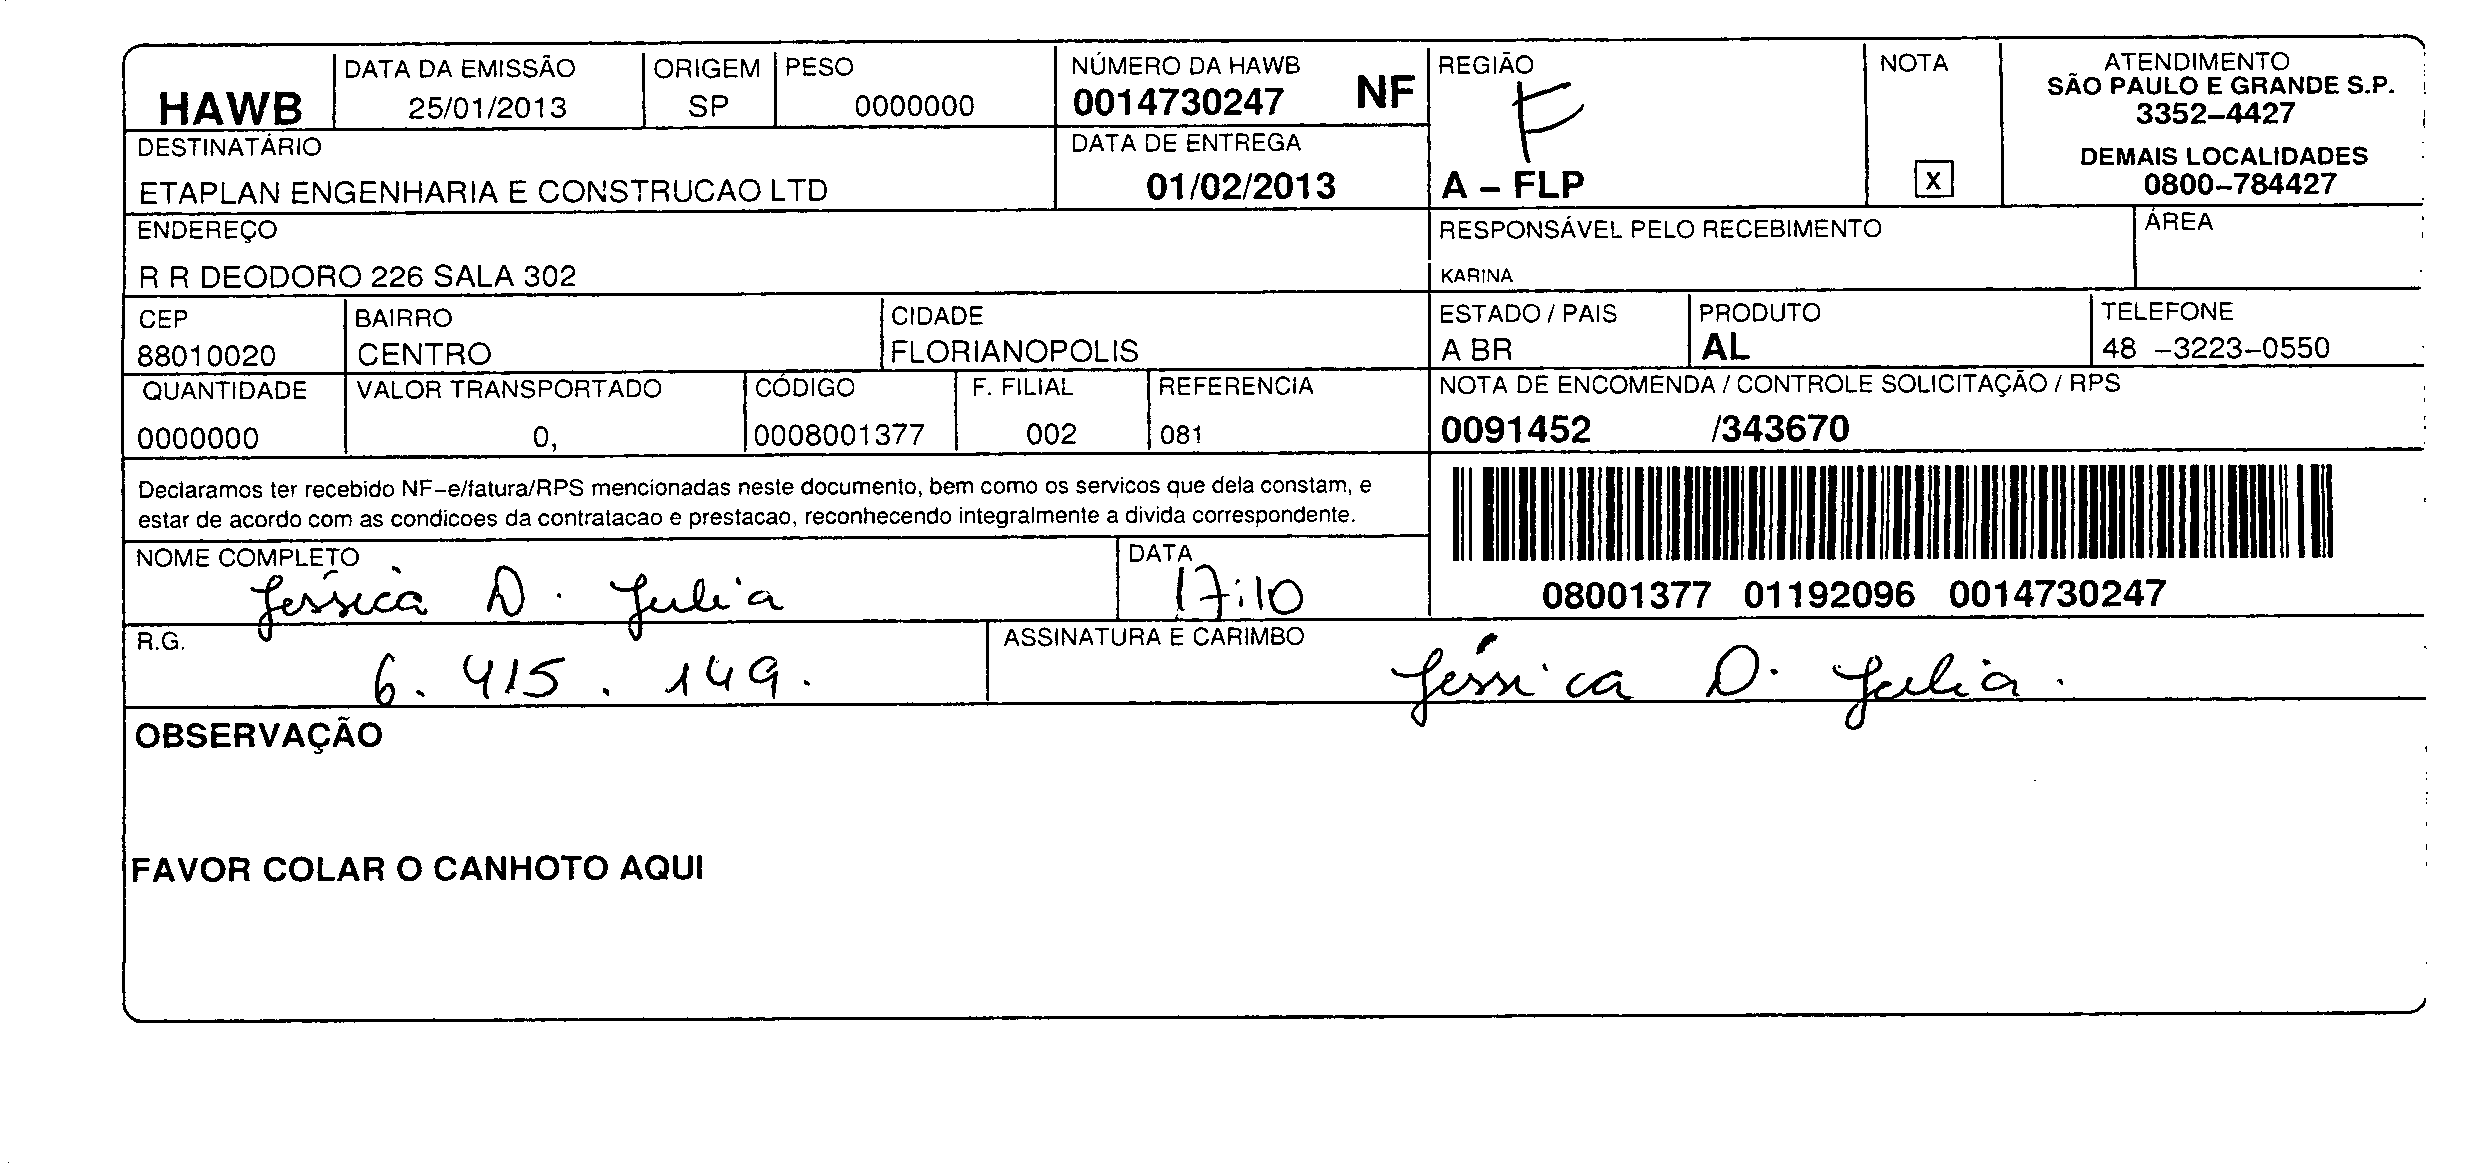 HAWB
DATA DA EMISSÃO
25/01/2013
ORIGEM
SP
PESO
0000000
NÚMERO DA HAWB
0014730247 NF
REGIÃO
F
A – FLP
NOTA
X
ATENDIMENTO
SÃO PAULO E GRANDE S.P.
3352–4427
DEMAIS LOCALIDADES
0800–784427
DESTINATÁRIO
ETAPLAN ENGENHARIA E CONSTRUCAO LTD
DATA DE ENTREGA
01/02/2013
ENDEREÇO
R R DEODORO 226 SALA 302
RESPONSÁVEL PELO RECEBIMENTO
KARINA
ÁREA
CEP
88010020
BAIRRO
CENTRO
CIDADE
FLORIANOPOLIS
ESTADO / PAIS
A BR
PRODUTO
AL
TELEFONE
48 –3223–0550
QUANTIDADE
0000000
VALOR TRANSPORTADO
0,
CÓDIGO
0008001377
F. FILIAL
002
REFERENCIA
081
NOTA DE ENCOMENDA / CONTROLE SOLICITAÇÃO / RPS
0091452 /343670
Declaramos ter recebido NF–e/fatura/RPS mencionadas neste documento, bem como os servicos que dela constam, e
estar de acordo com as condicoes da contratacao e prestacao, reconhecendo integralmente a divida correspondente.
08001377 01192096 0014730247
NOME COMPLETO
Jéssica D. Julia
DATA
17:10
R.G.
6.415.149.
ASSINATURA E CARIMBO
Jéssica D. Julia.
OBSERVAÇÃO
FAVOR COLAR O CANHOTO AQUI